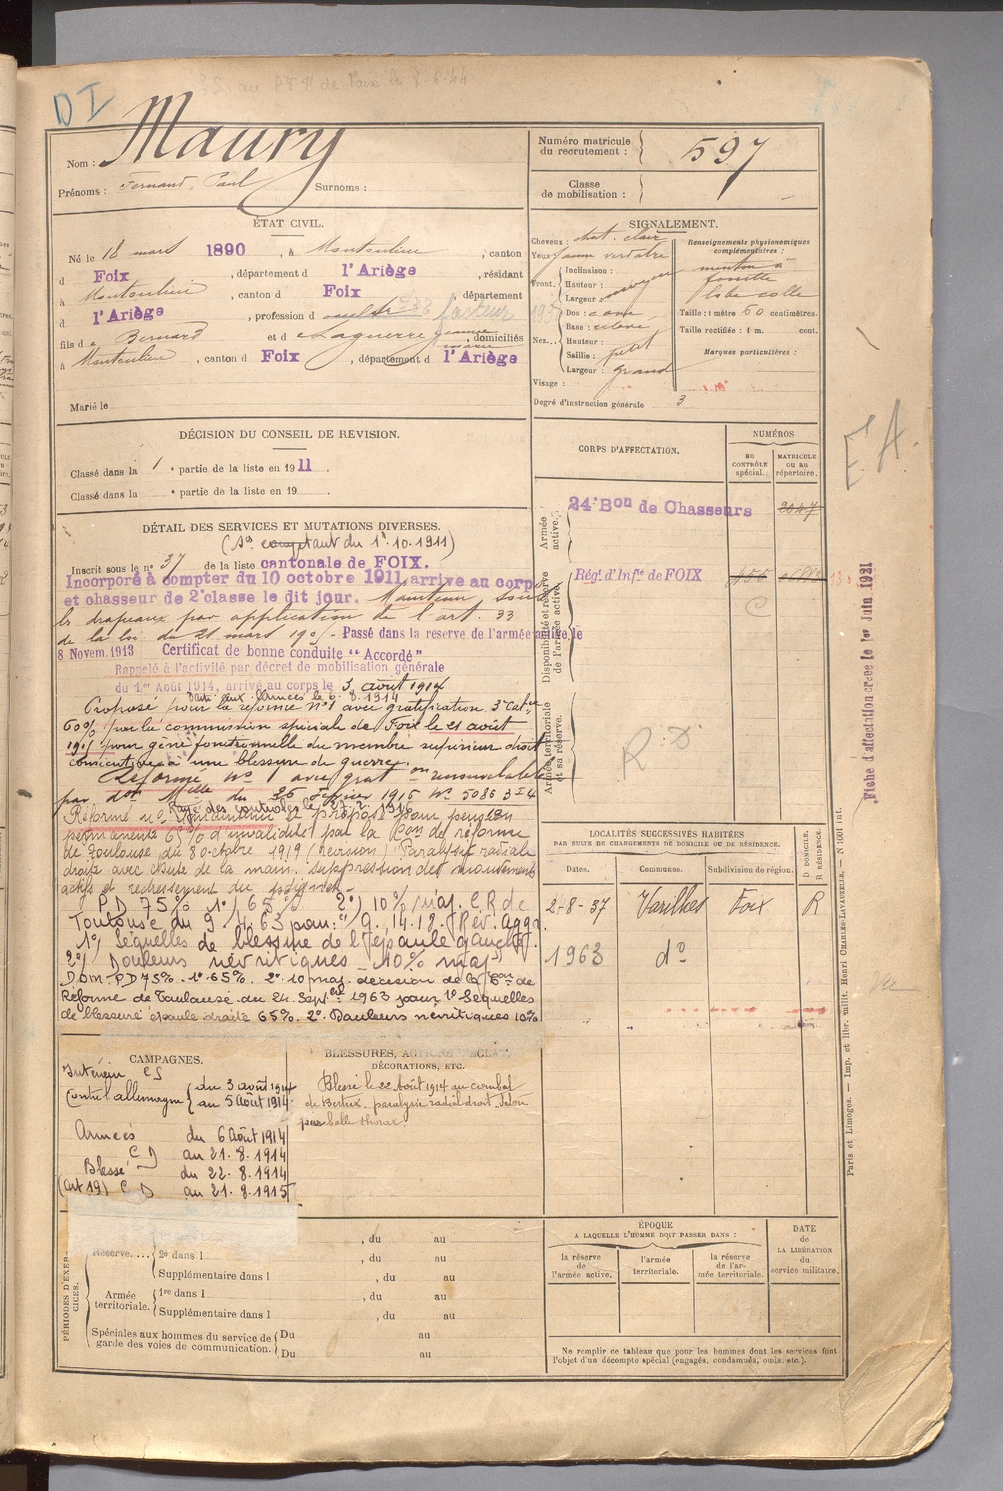 DI
Nom : Maury
Prénoms : Fernand, Paul Surnoms :
Numéro matricule du recrutement : 597
Classe de mobilisation :
ÉTAT CIVIL.
Né le 18 mars 1890, à Montoulieu, canton
d Foix, département d l'Ariège, résidant
à Montoulieu, canton d Foix, département
d l'Ariège, profession d facteur
fils de Bernard et d Laguerre Jeanne Marie, domiciliés
à Montoulieu, canton d Foix, département d l'Ariège
Marié le
SIGNALEMENT.
Cheveux : chat. clair
Yeux jaune verdatre
Front. Inclinaison :
Hauteur : moyen
Largeur :
Nez... Dos : cave
Base : relevé
Hauteur :
Saillie : petit
Largeur : grand
Visage :
Degré d'instruction générale 3
Renseignements physionomiques complémentaires :
menton à
fossette
lobe collé
Taille : 1 mètre 60 centimètres.
Taille rectifiée : 1 m. cent.
Marques particulières :
DÉCISION DU CONSEIL DE REVISION.
Classé dans la 1 e partie de la liste en 1911.
Classé dans la e partie de la liste en 19
DÉTAIL DES SERVICES ET MUTATIONS DIVERSES.
(Sce comptant du 1er.10.1911)
Inscrit sous le n° 37 de la liste cantonale de FOIX.
Incorporé à compter du 10 octobre 1911, arrive au corps
et chasseur de 2e classe le dit jour. Maintenu sous
les drapeaux par application de l'art. 33
de la loi du 21 mars 1905 - Passé dans la reserve de l'armée active le
8 Novem. 1913 Certificat de bonne conduite "Accordé"
Rappelé à l'activité par décret de mobilisation générale
du 1er Août 1914, arrivé au corps le 3 août 1914
Parti aux Armées le 6.8.1914
Proposé pour la réforme n°1 avec gratification 3e Catie
60% par la commission spéciale de Foix le 21 août
1915 pour gêne fonctionnelle du membre supérieur droit
consécutive à une blessure de guerre.
Réformé n° 1 avec grat on renouvelable
par don Mlle du 25 Février 1916 N° 5086 3=4
Rayé des contrôles le 27.2.1916
Réformé n° 1 Maintenu et proposé pour pension
permanente 65% d'invalidité par la Con de réforme
de Toulouse du 8 octobre 1919 (Révision) "Paralysie radiale
droite avec chute de la main. suppression des mouvements
actifs et redressement du poignet -
PD 75% 1°/ 65% 2°/ 10% maj. C.R de
Toulouse du 9.4.63 pour "G.14.18. (Rév. Agga.
1°/ Séquelles de blessure de l'épaule gauche.
2°/ Douleurs névritiques - 10% maj"
D.D.M. PD 75%. 1° 65%. 2° 10 maj - décision de la Con de
Réforme de Toulouse du 24. Septbre 1963 pour 1° Séquelles
de blessure épaule droite 65%. 2° Douleurs névritiques 10%
CORPS D'AFFECTATION.
NUMÉROS
au CONTRÔLE spécial.
MATRICULE ou au répertoire.
Armée active.
24e Bon de Chasseurs 2047
Disponibilité et réserve de l'armée active.
Régt d'Infie de FOIX
C
Armée territoriale et sa réserve.
R. D
E.A.
Fiche d'affectation créée le 1er Juin 1921
LOCALITÉS SUCCESSIVES HABITÉES
PAR SUITE DE CHANGEMENTS DE DOMICILE OU DE RÉSIDENCE.
Dates. Communes. Subdivision de région. D DOMICILE. R RÉSIDENCE.
2-8-37 Varilhes Foix R
1963 d°
CAMPAGNES.
Intérieur CS
Contre l'allemagne du 3 août 1914
au 5 Août 1914
Armées du 6 Août 1914
CD au 21.8.1914
Blessé du 22.8.1914
(art 19) CD au 21.8.1915
BLESSURES, ACTIONS D'ÉCLAT,
DÉCORATIONS, ETC.
Blessé le 22 Août 1914 au combat
de Bertrix, paralysie radial droit
par balle thorax
PÉRIODES D'EXERCICES.
, du au
Réserve.... 2e dans l , du au
Supplémentaire dans l , du au
Armée territoriale. 1re dans l , du au
Supplémentaire dans l , du au
Spéciales aux hommes du service de garde des voies de communication. Du au
Du au
ÉPOQUE
A LAQUELLE L'HOMME DOIT PASSER DANS :
la réserve de l'armée active.
l'armée territoriale.
la réserve de l'armée territoriale.
DATE DE LA LIBÉRATION du service militaire.
Ne remplir ce tableau que pour les hommes dont les services font
l'objet d'un décompte spécial (engagés, condamnés, omis, etc.).
Paris et Limoges. — Imp. et libr. milit. Henri CHARLES-LAVAUZELLE. — N 1001 int.